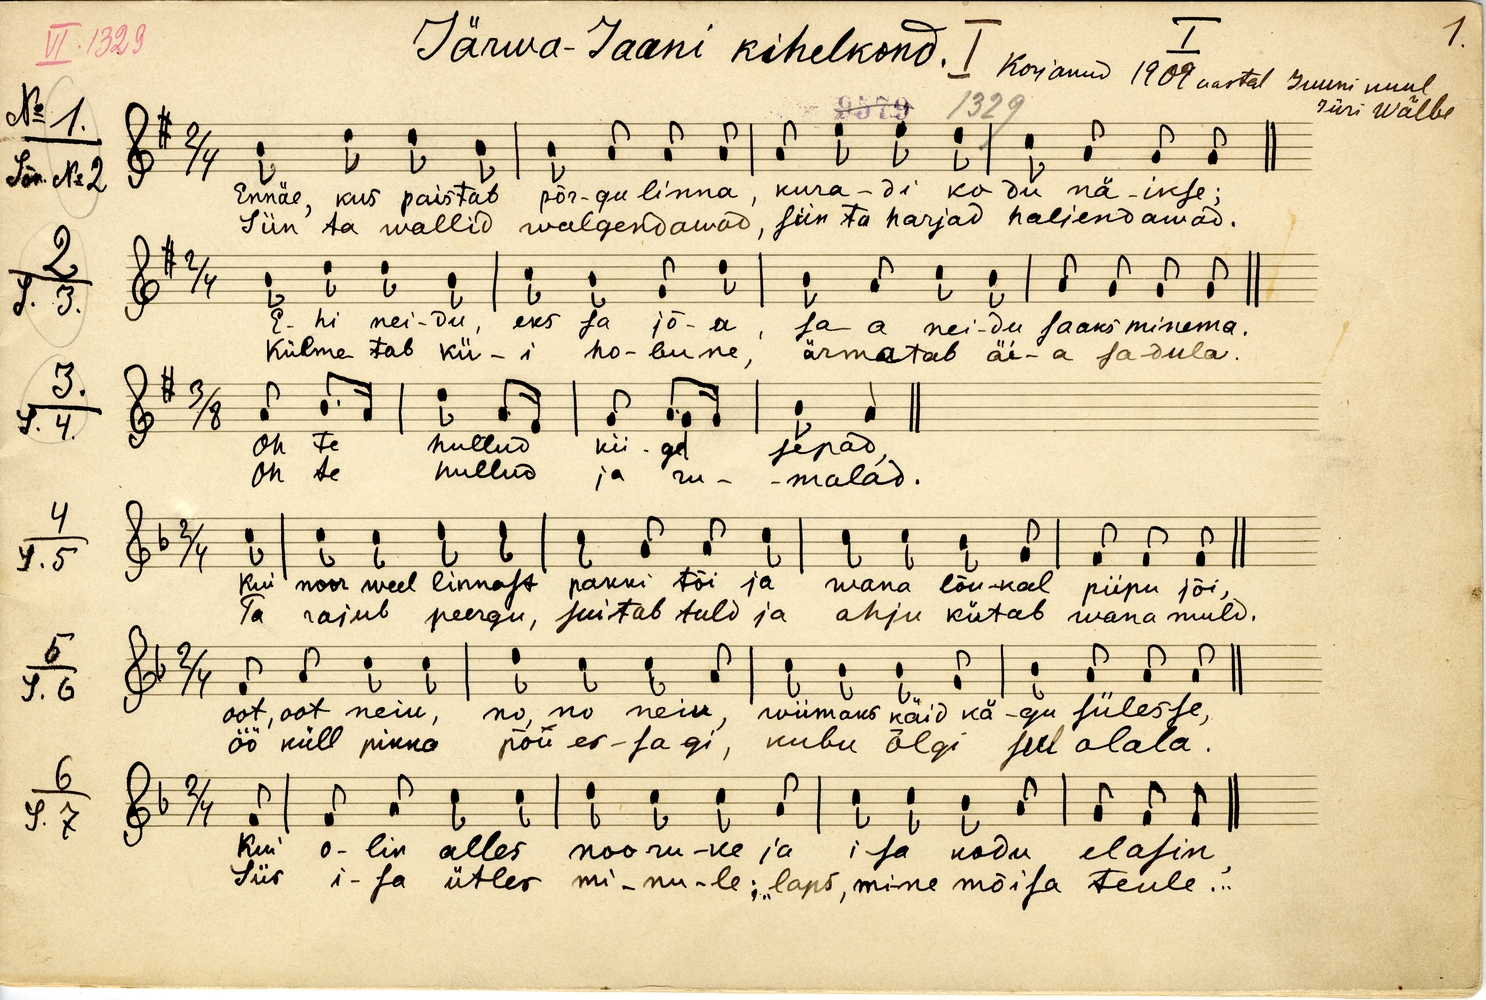 VI. 1329
Järwa-Jaani kihelkond. I
I
1.
Korjanud 1909 aastal Juuni kuul
Jüri Wälbe
9579 1329
№ 1.
Sõn. № 2
2/4
Ennäe, kus paistab põr-gu linna, kura-di ko du nä-ikse;
Siin ta wallid walgendawad, siin ta harjad haljendawad.
2
S. 3.
2/4
E-hi nei-du, eks sa jõ-a, sa-a nei-du saaks minema.
Külme-tab kü-i ho-bu ne, ärmatab äi-a sa-dula.
3.
S. 4.
3/8
Oh te hullud kii-ge sepad,
Oh te hullud ja ru--malad.
4
S. 5
2/4
Kui noor weel linnast pakki tõi ja wana lõu-kal piipu jõi,
Ta raiub peergu, suitab tuld ja ahju kütab wana muld.
5
S. 6
2/4
oot, oot neiu, no, no neiu, wiimaks käid kä-gu sülesse,
öö küll pikka põu es-sa gi, kubu õlgi sul alala.
6
S. 7
2/4
Kui o-lin alles nooru-ke ja i-sa kodu elasin,
Siis i-sa ütles mi-nu-le: „laps, mine mõisa teule."